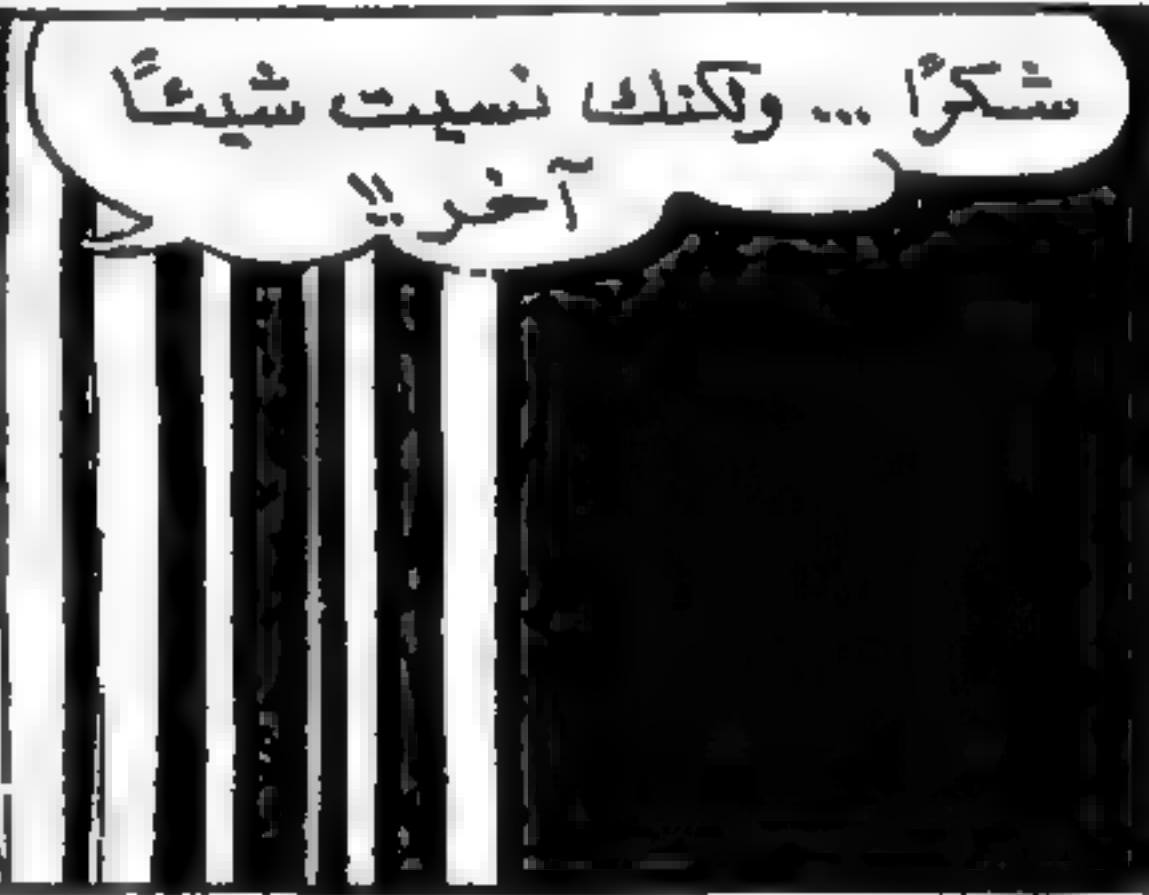 شكرًا ... ولكنك نسيت شيئًا
آخر !!